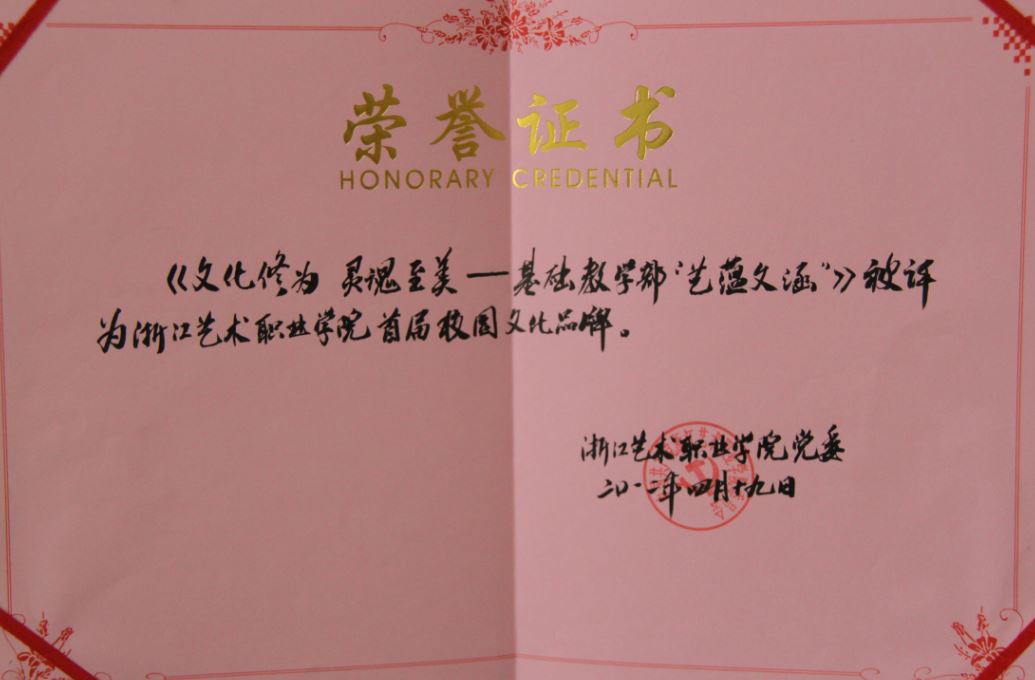 荣誉证书
HONORARY CREDENTIAL
《文化修为 灵魂至美—基础教学部“艺蕴文涵”》被评
为浙江艺术职业学院首届校园文化品牌。
浙江艺术职业学院党委
二〇一二年四月十九日